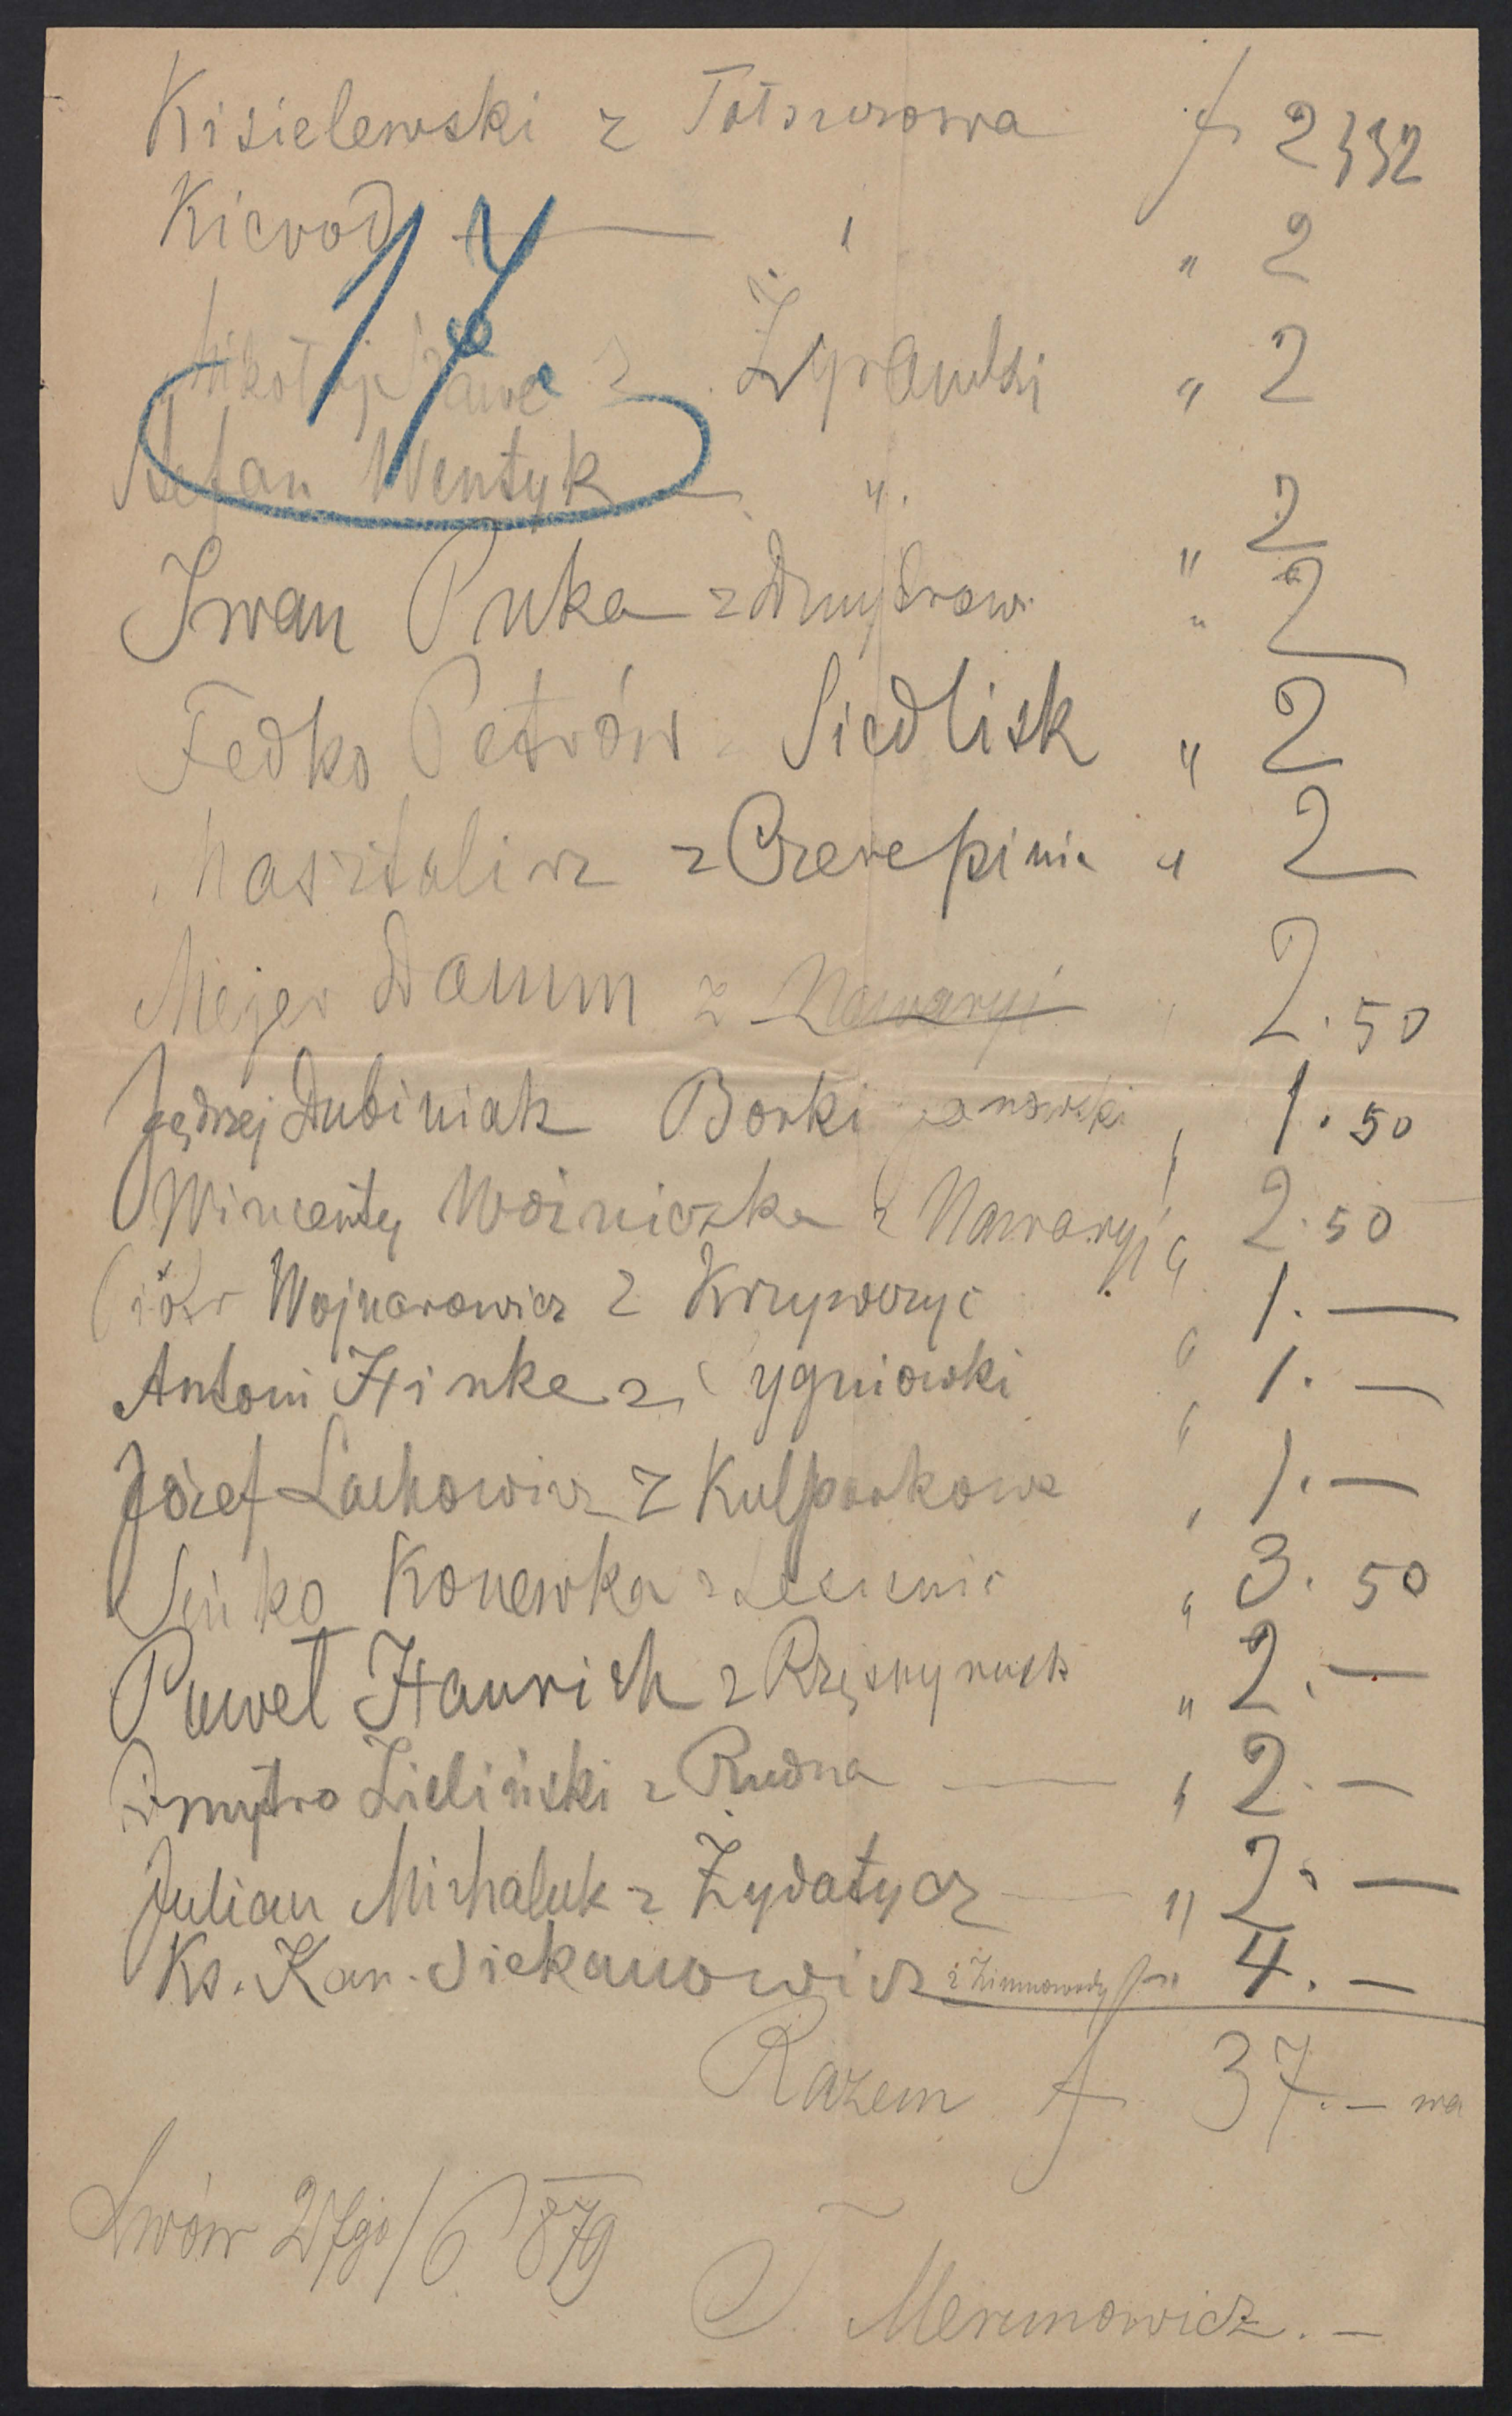 Kisielewski z f 2
332
Kicrod — " " 2
17
Mikołaj z " 2
Stefan Wentyk — " " 2
Iwan Puka z " 2
Fedko Petrów Siedlisk " 2
z Czerepinie " 2
Mejer Damm z Nawaryi " 2.50
Jędrzej Dubiniak Borki janowski " 1.50
Wincenty Woźniczka z Nawaryi " 2.50
Piotr Wojnarowicz z Krzywczyc " 1.—
Antoni Hinke z Sygniowki " 1.—
Józef Lachowicz z Kulparkowa " 1.—
Seńko Konewka z " 3.50
Paweł Haurich z Rzęsny rusk " 2.—
Dmytro Zieliński z Rudna — " 2.—
Julian Michaluk z Żydatycz — " 2.—
Ks. Kan. Siekanowicz z Zimnowody 4.—
Razem f 37.— wa
Lwów 27go/6 879
T. Merunowicz.—